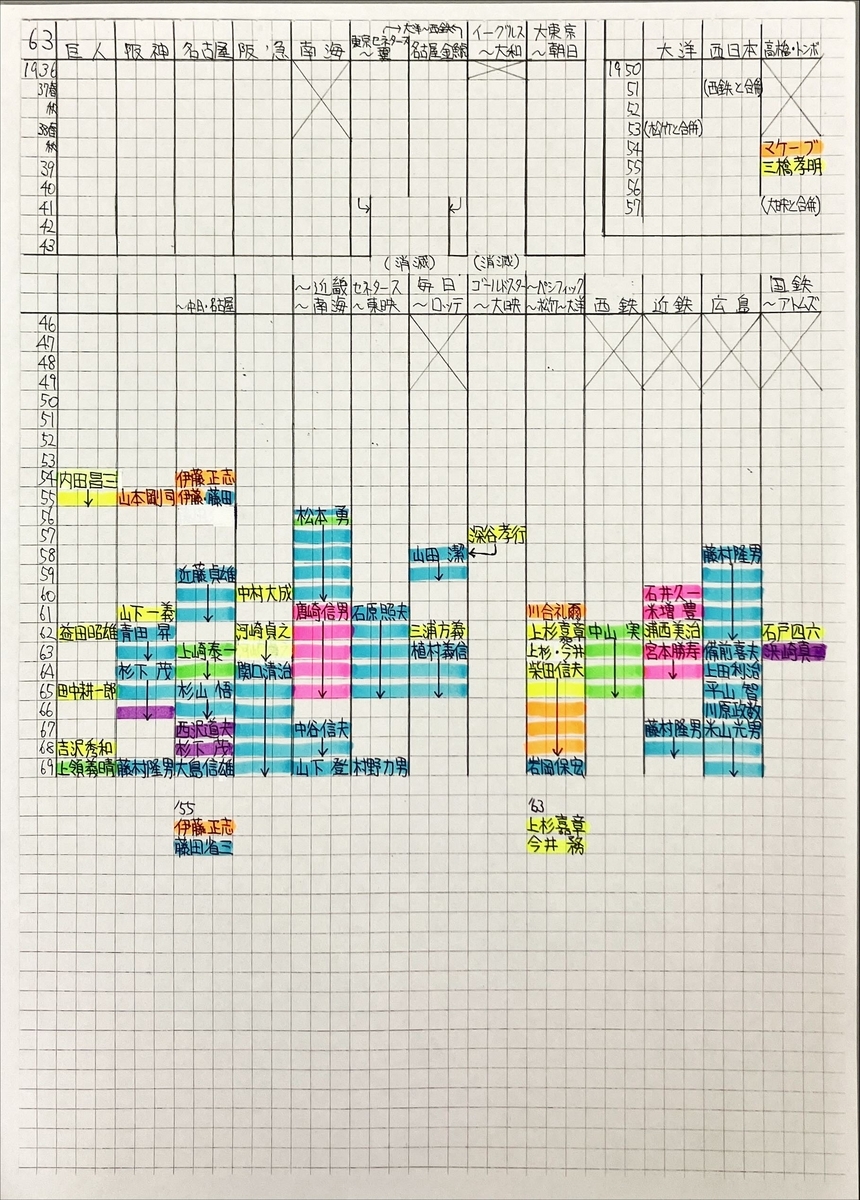 63 巨人 阪神 名古屋 阪急 南海 東京セネタース～翼 大洋～西鉄 名古屋金鯱 イーグルス～大和 大東京～朝日
大洋 西日本 高橋・トンボ
1936 1950
37春 51 (西鉄と合併)
秋 52
38春 53 (松竹と合併)
秋 54 マケーブ
39 55 三橋孝明
40 56
41 57 (大映と合併)
42
43
(消滅) (消滅)
～中日・名古屋 ～近畿～南海 セネタース～東映 毎日～ロッテ ゴールドスター～大映 ～パシフィック～松竹～大洋 西鉄 近鉄 広島 国鉄～アトムズ
46
47
48
49
50
51
52
53
54 内田昌三 伊藤正志
55 山本剛司 伊藤・藤田
56 松本勇
57 深谷孝行
58 山田潔 藤村隆男
59 近藤貞雄
60 中村大成 石井久一
61 山下一義 唐崎信男 石原照夫 川合礼爾 米増豊
62 益田昭雄 青田昇 河崎貞之 三浦方義 上杉嘉章 中山実 浦西美治 石戸四六
63 上崎泰一 植村義信 上杉・今井 宮本勝寿 備前喜夫 浜崎真二
64 杉下茂 関口清治 柴田信夫 上田利治
65 田中耕一郎 杉山悟 平山智
66 川原政数
67 西沢道夫 中谷信夫 藤村隆男 米山光男
68 吉沢秀和 杉下茂
69 上領義晴 藤村隆男 大島信雄 山下登 村野力男 岩岡保宏
'55 '63
伊藤正志 上杉嘉章
藤田省三 今井務